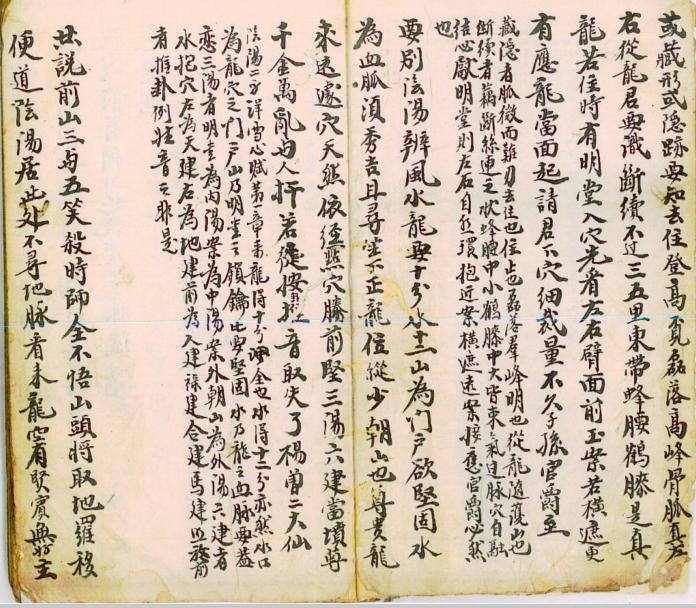 或藏形或隱跡要知去住登高覓磊落高峰骨脈真左
右從龍君要識斷續不过三五里束帶蜂腰鶴膝是真
龍若住時有明堂入穴先看左右臂面前玉案若橫遮更
有應龍當面起請君下穴細裁量不久子孫官爵至
藏隱者脈微而難明去住也住止也磊落羣峰明也從龍隨護山也
斷續者藕斷絲連之狀蜂腰中小鶴膝中大皆束氣过脉穴自融
結心獻明堂則左右自然環抱近案橫遮遠案接應官爵必然
也
要別陰陽辨風水龍要十分水十二山為門戶欲堅固水
為血脈須秀吉且尋坐下正龍位從少朝山也尊貴龍
來遠遠穴天然依徑點穴勝前堅三陽六建當墳尊
千金萬亂與人扦若從撥掛音取失了楊曾二大仙
陰陽二字詳雪心賦第二章來龍得十分坤全也水得十二分亦然水口
為龍穴之門戶山乃明堂之鎖鑰比要堅固水乃龍之血脉要益
恋三陽者明堂為內陽案為中陽案外朝山為外陽六建者
水抱穴左為天建右為地建前為人建祿建合建馬建四旅前
者推卦例裝音之非是
世說前山三與五笑殺時師全不悟山頭將取地羅移
便道陰陽居此处不尋地脉看来龍宜看堅賓與主